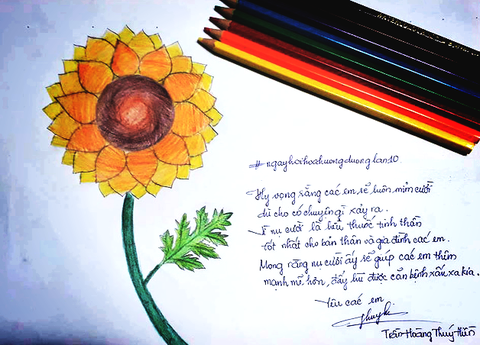 #ngayhoihoahuongduonglan10
Hy vọng rằng các em sẽ luôn mỉm cười
dù cho có chuyện gì xảy ra.
Vì nụ cười là liều thuốc tinh thần
tốt nhất cho bản thân và gia đình các em.
Mong rằng nụ cười ấy sẽ giúp các em thêm
mạnh mẽ hơn, đẩy lùi được căn bệnh xấu xa kia.
Yêu các em.
Trần Hoàng Thúy Hiền